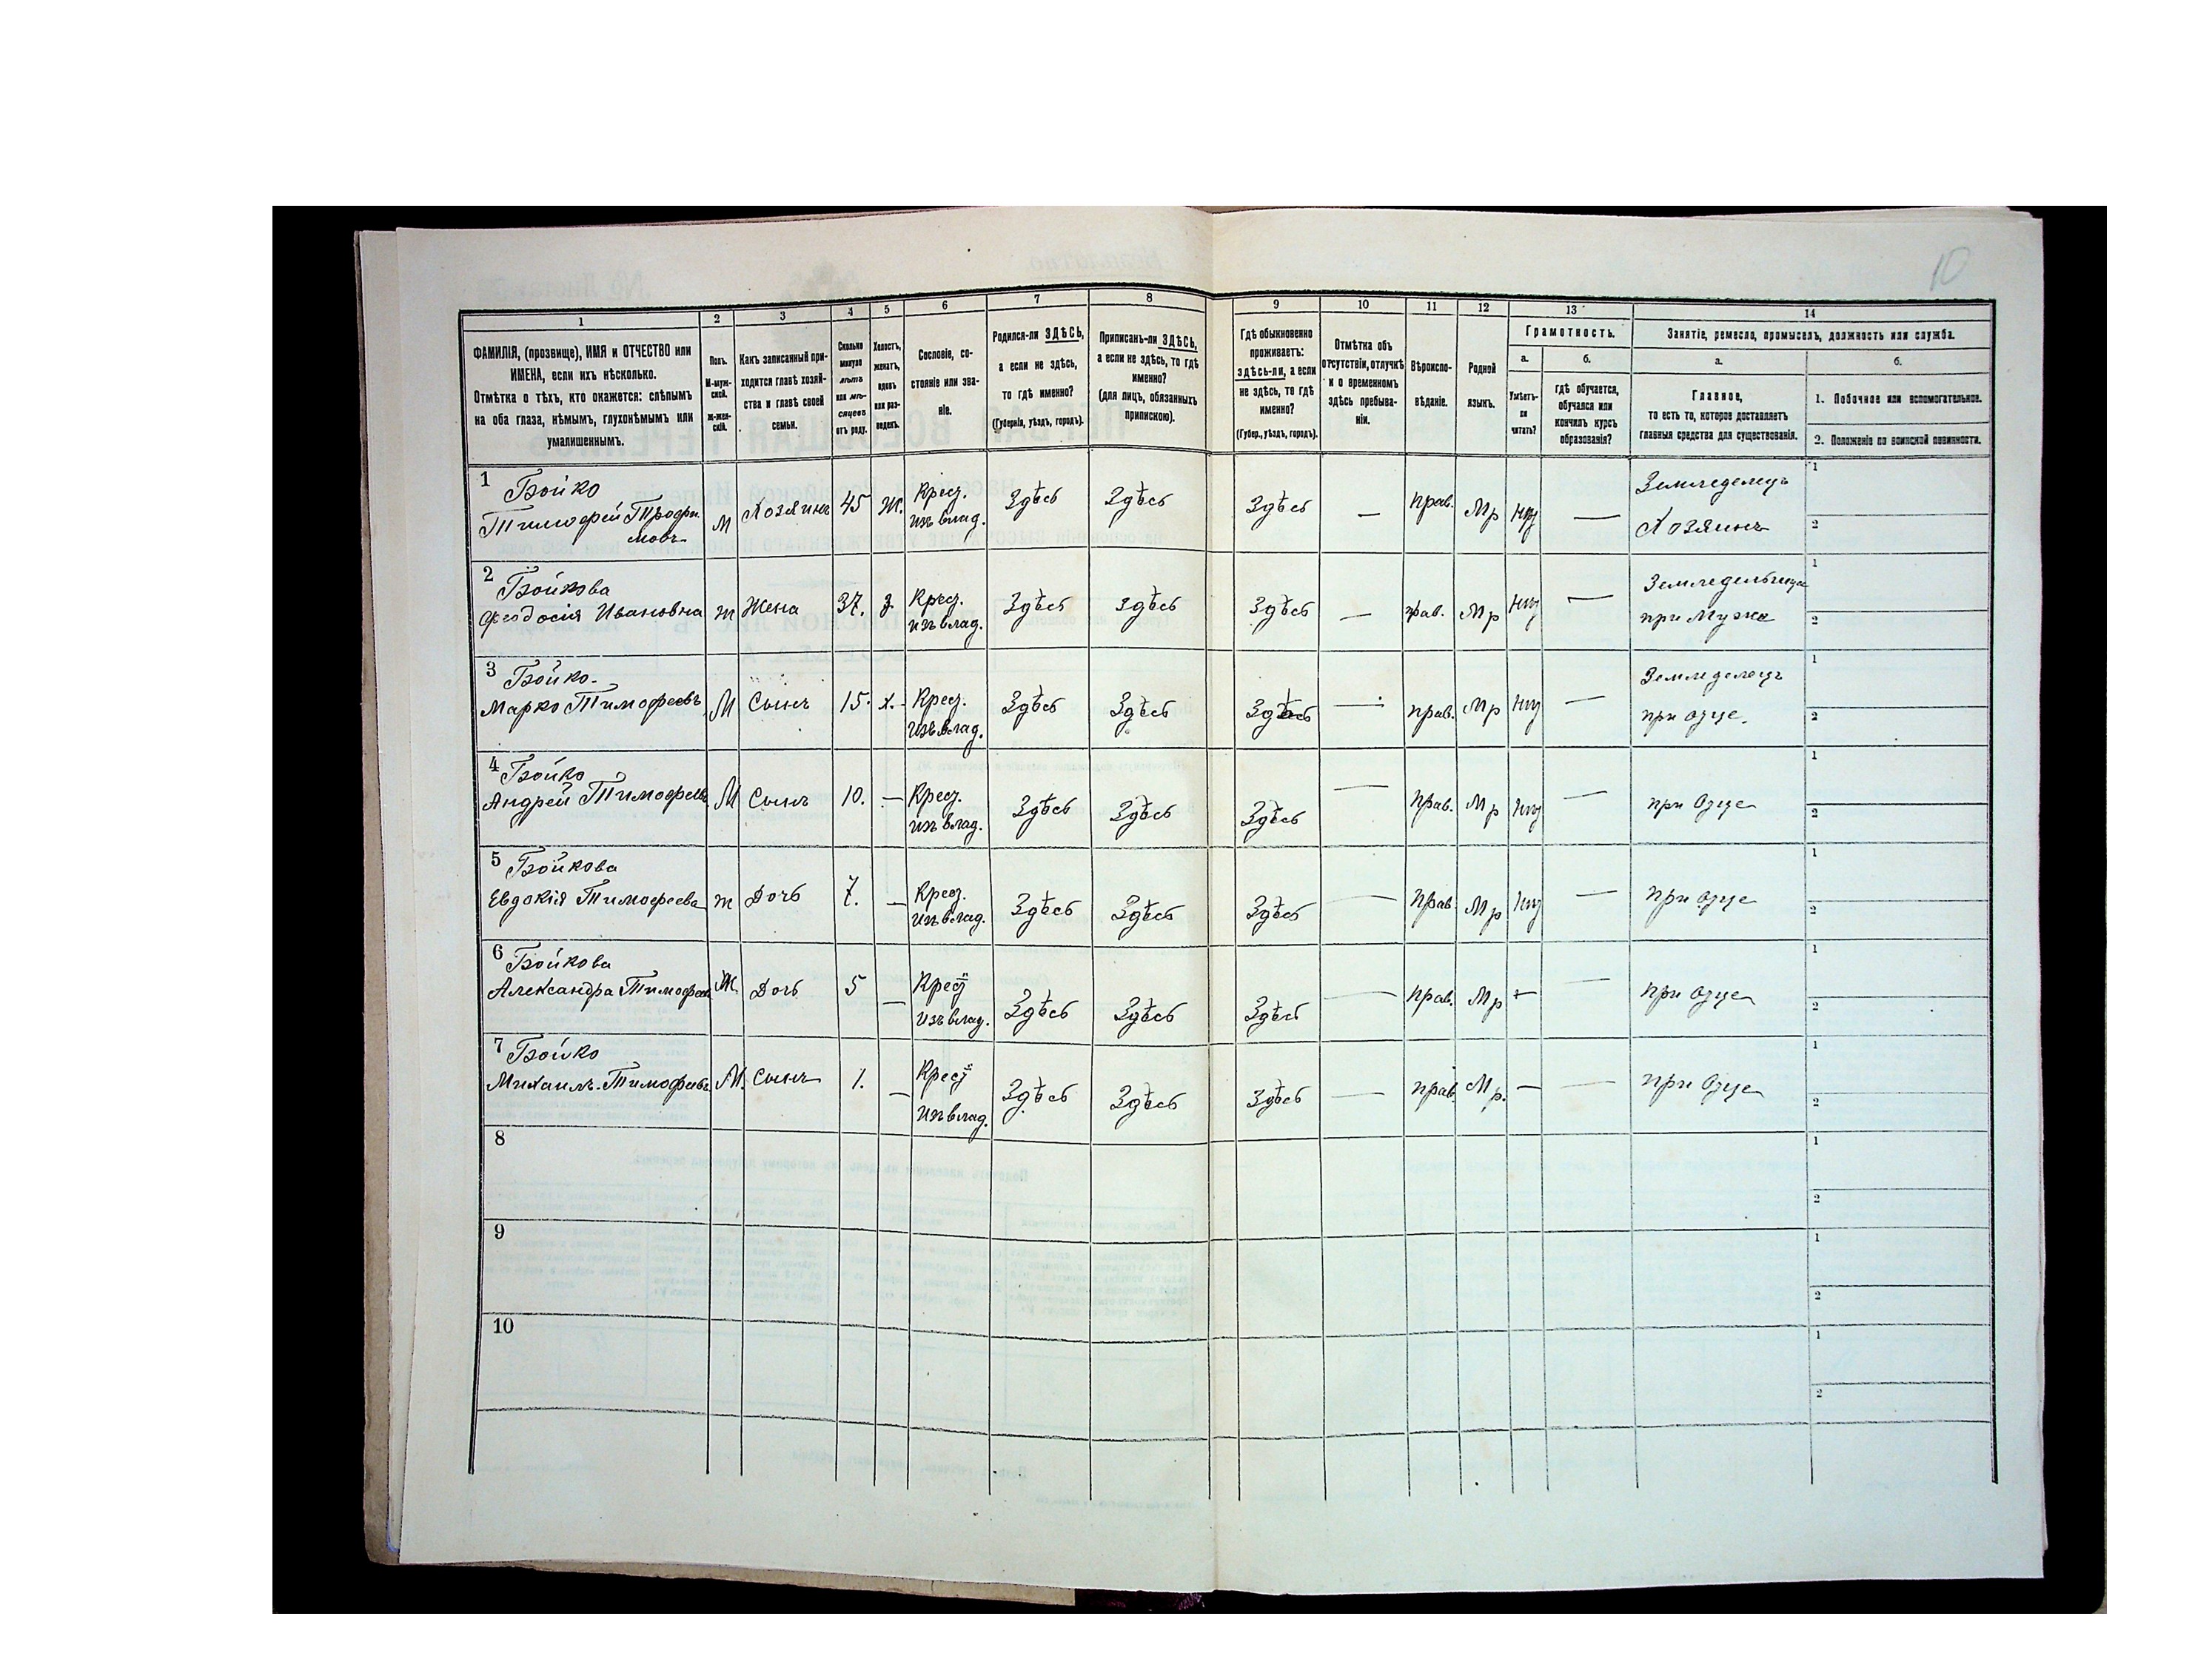 10
1 2 3 4 5 6 7 8 9 10 11 12 13 14
ФАМИЛІЯ, (прозвище), ИМЯ и ОТЧЕСТВО или
ИМЕНА, если ихъ нѣсколько.
Отмѣтка о тѣхъ, кто окажется: слѣпымъ
на оба глаза, нѣмымъ, глухонѣмымъ или
умалишеннымъ.
Полъ.
М-муж-
ской.
Ж-жен-
скій.
Какъ записанный при-
ходится главѣ хозяй-
ства и главѣ своей
семьи.
Сколько
минуло
лѣтъ
или мѣ-
сяцевъ
отъ роду.
Холостъ,
женатъ,
вдовъ
или раз-
веденъ.
Сословіе, со-
стояніе или зва-
ніе.
Родился-ли ЗДѢСЬ,
а если не здѣсь,
то гдѣ именно?
(Губернія, уѣздъ, городъ).
Приписанъ-ли ЗДѢСЬ,
а если не здѣсь, то гдѣ
именно?
(для лицъ, обязанныхъ
припискою).
Гдѣ обыкновенно
проживаетъ:
здѣсь-ли, а если
не здѣсь, то гдѣ
именно?
(Губер., уѣздъ, городъ).
Отмѣтка объ
отсутствіи, отлучкѣ
и о временномъ
здѣсь пребыва-
ніи.
Вѣроиспо-
вѣданіе.
Родной
языкъ.
Грамотность.
а. б.
Умѣетъ-
ли
читать?
гдѣ обучается,
обучался или
кончилъ курсъ
образованія?
Занятіе, ремесло, промыселъ, должность или служба.
а. б.
Главное,
то есть то, которое доставляетъ
главныя средства для существованія.
1. Побочное или вспомогательное.
2. Положеніе по воинской повинности.
1 Бойко
Тимофей Трофи
мовъ М Хозяинъ 45 Ж. Крест. изъ влад. Здѣсь Здѣсь Здѣсь — прав. Мр нѣт — Земледелецъ Хозяинъ 1 2
2 Бойкова
Феодосія Ивановна ж Жена 37. з. Крест. изъ влад. Здѣсь Здѣсь Здѣсь — прав. Мр нѣт — при Муже 1 2
3 Бойко.
Марко Тимофеевъ М Сынъ 15. х. Крест. изъ влад. Здѣсь Здѣсь Здѣсь — прав. Мр нѣт — Земледелецъ при отце. 1 2
4 Бойко
Андрей Тимофеевъ М Сынъ 10. — Крест. изъ влад. Здѣсь Здѣсь Здѣсь — прав. Мр нѣт — при Отце 1 2
5 Бойкова
Евдокія Тимофеева ж Дочь 7. — Крест. изъ влад. Здѣсь Здѣсь Здѣсь — прав. Мр нѣт — при Отце 1 2
6 Бойкова
Александра Тимофеев Ж. Дочь 5 — Крест изъ влад. Здѣсь Здѣсь Здѣсь — прав. Мр — — при Отце 1 2
7 Бойко
Михаилъ Тимофеевъ М. Сынъ 1. — Крест изъ влад. Здѣсь Здѣсь Здѣсь — прав. Мр. — — при Отце 1 2
8 1 2
9 1 2
10 1 2